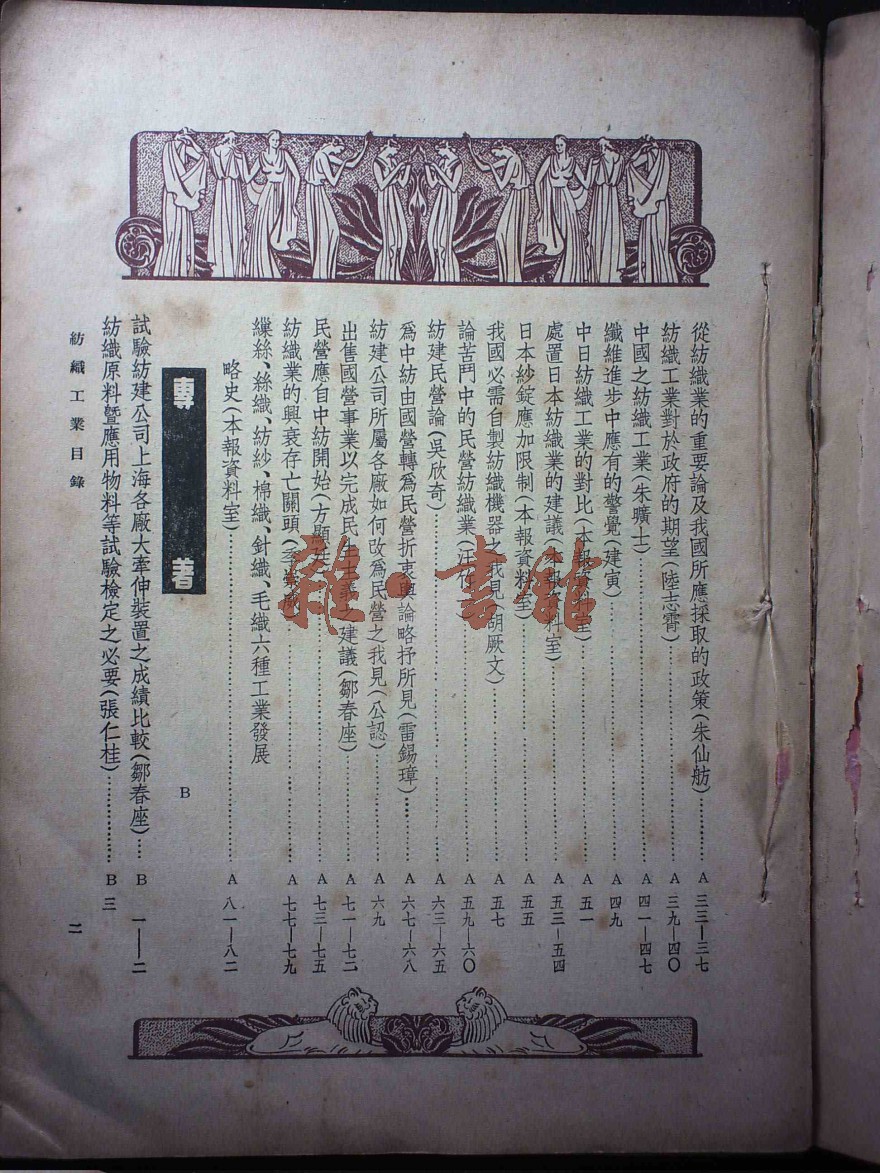 從紡織業的重要論及我國所應採取的政策(朱仙舫)……A 三三—三七
紡織工業對於政府的期望(陸志霄)……A 三九—四〇
中國之紡織工業(朱曠士)……A 四一—四七
纖維進步中應有的警覺(建寅)……A 四九
中日紡織工業的對比(本報資料室)……A 五一
處置日本紡織業的建議(本報資料室)……A 五三—五四
日本紗錠應加限制(本報資料室)……A 五五
我國必需自製紡織機器之我見(胡厥文)……A 五七
論苦鬥中的民營紡織業(汪竹)……A 五九—六〇
紡建民營論(吳欣奇)……A 六三—六五
爲中紡由國營轉爲民營折衷輿論略抒所見(雷錫璋)……A 六七—六八
紡建公司所屬各廠如何改爲民營之我見(公認)……A 六九
出售國營事業以完成民生主義之建議(鄒春座)……A 七一—七二
民營應自中紡開始(方顯廷)……A 七三—七五
紡織業的興衰存亡關頭……A 七七—七九
繅絲、絲織、紡紗、棉織、針織、毛織六種工業發展
略史(本報資料室)……A 八一—八二
專著 B
試驗紡建公司上海各廠大牽伸裝置之成績比較(鄒春座)……B 一—二
紡織原料暨應用物料等試驗檢定之必要(張仁桂)……B 三
紡織工業目錄 二
雜·書館